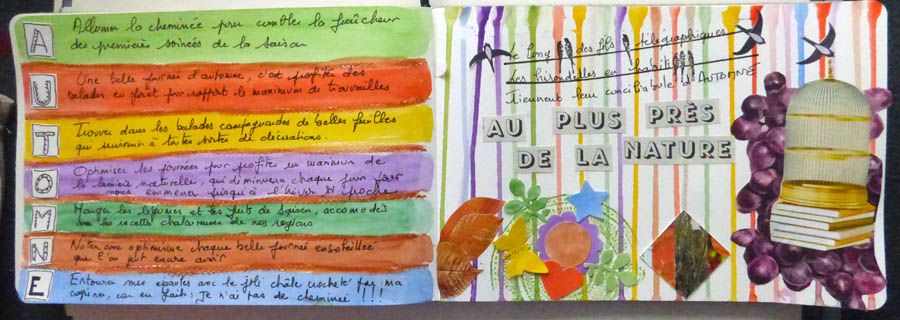 A
Allumer la cheminée pour combler la fraîcheur
des premières soirées de la saison
U
Une belle journée d'automne, c'est profiter des
balades en forêt pour rapport le maximum de trouvailles
T
Trouver dans les balades campagnardes de belles feuilles
qui serviront à toutes sortes de décorations.
O
Optimiser les journées pour profiter un maximum de
la lumière naturelle, qui diminuera chaque jour pour
nous emmener jusqu'à l'hiver si proche
M
Manger les légumes et les fruits de saison, accomodés
dans les recettes chaleureuses de nos régions
N
Noter avec optimisme chaque belle journée ensoleillée
que l'on peut encore avoir
E
Entourer mes épaules avec le joli châle crocheté par ma
copine, car en fait : Je n'ai pas de cheminée !!!
Le long des fils télégraphiques
Les hirondelles en habit
Tiennent leur conciliabule d'AUTOMNE
AU PLUS PRÈS
DE LA NATURE